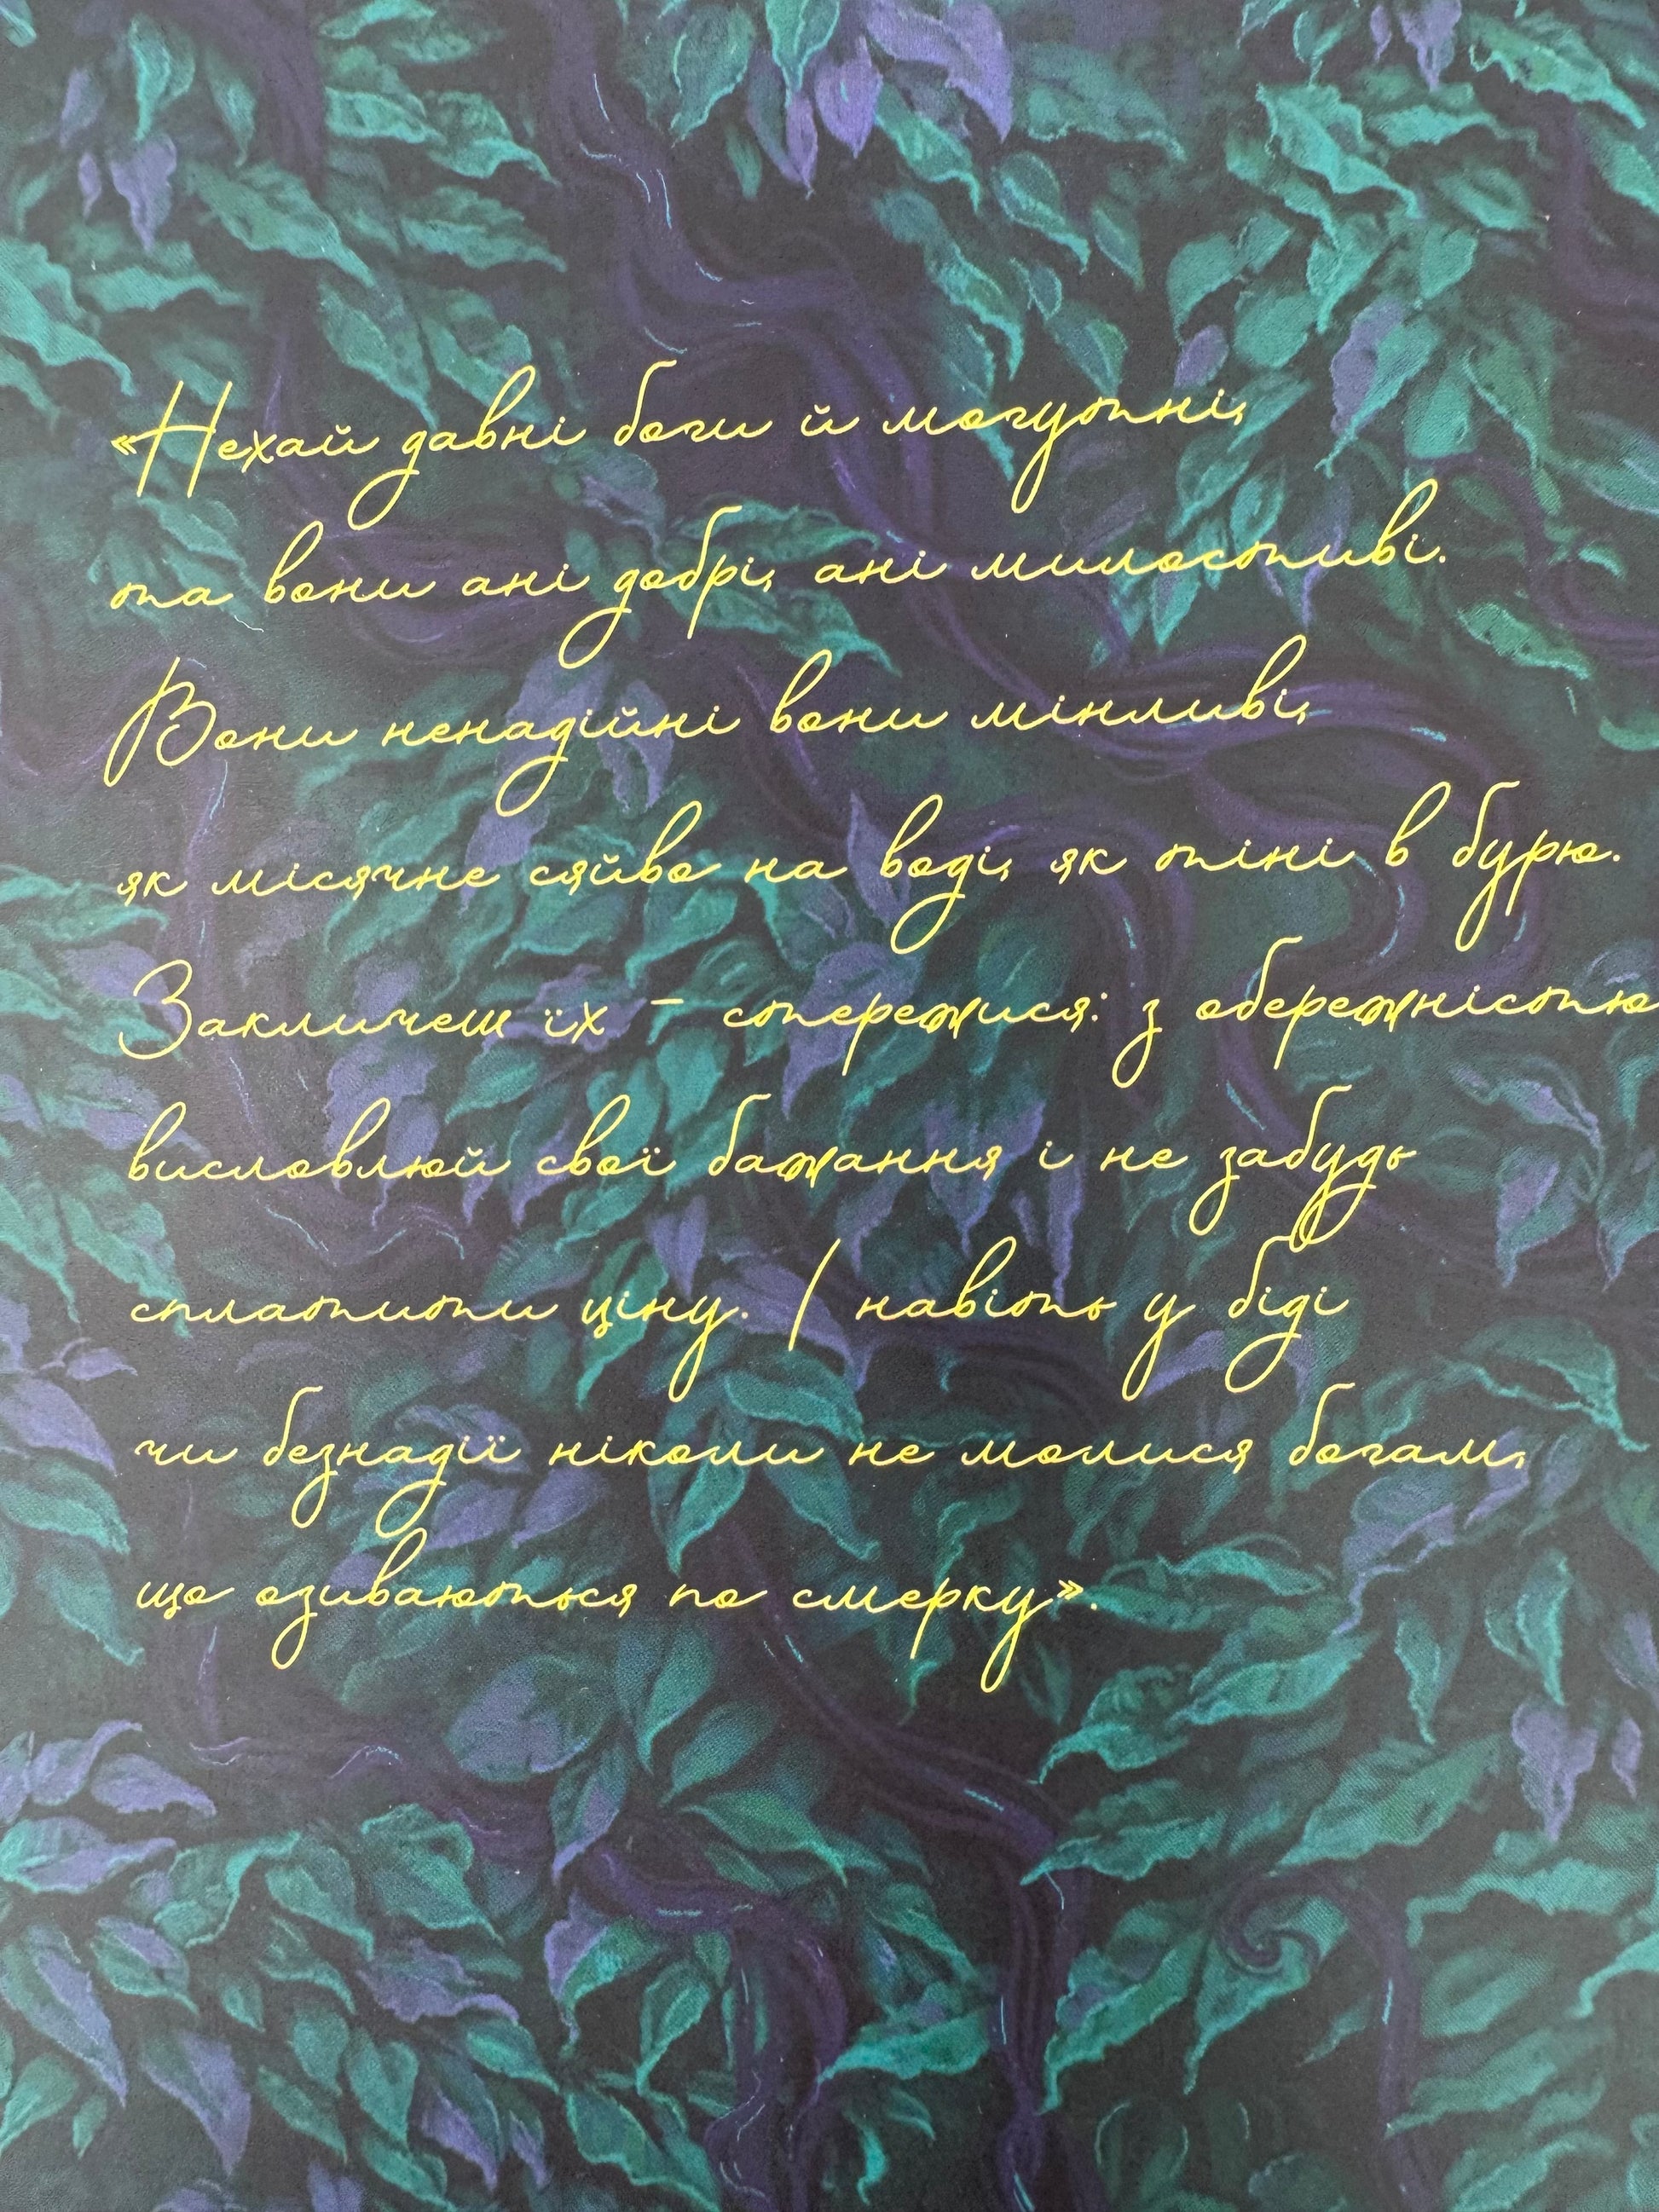 «Нехай давні боги й могутні,
та вони ані добрі, ані милостиві.
Вони ненадійні вони мінливі,
як місячне сяйво на воді, як тіні в бурю.
Закличеш їх – стережися: з обережністю
висловлюй свої бажання і не забудь
сплатити ціну. І навіть у біді
чи безнадії ніколи не молися богам,
що озиваються по смерку».